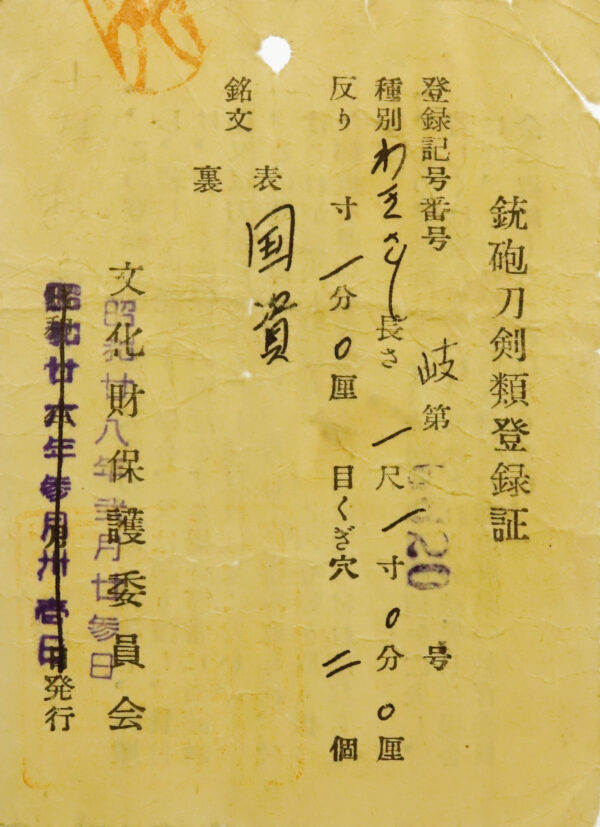 銃砲刀剣類登録証
登録記号番号 岐第 20号
種別わきざし長さ一尺一寸0分0厘
反り 寸一分0厘 目くぎ穴二個
銘文
表 国資
裏
文化財保護委員会
昭和廿八年弐月廿参日
昭和廿六年参月卅壱日発行